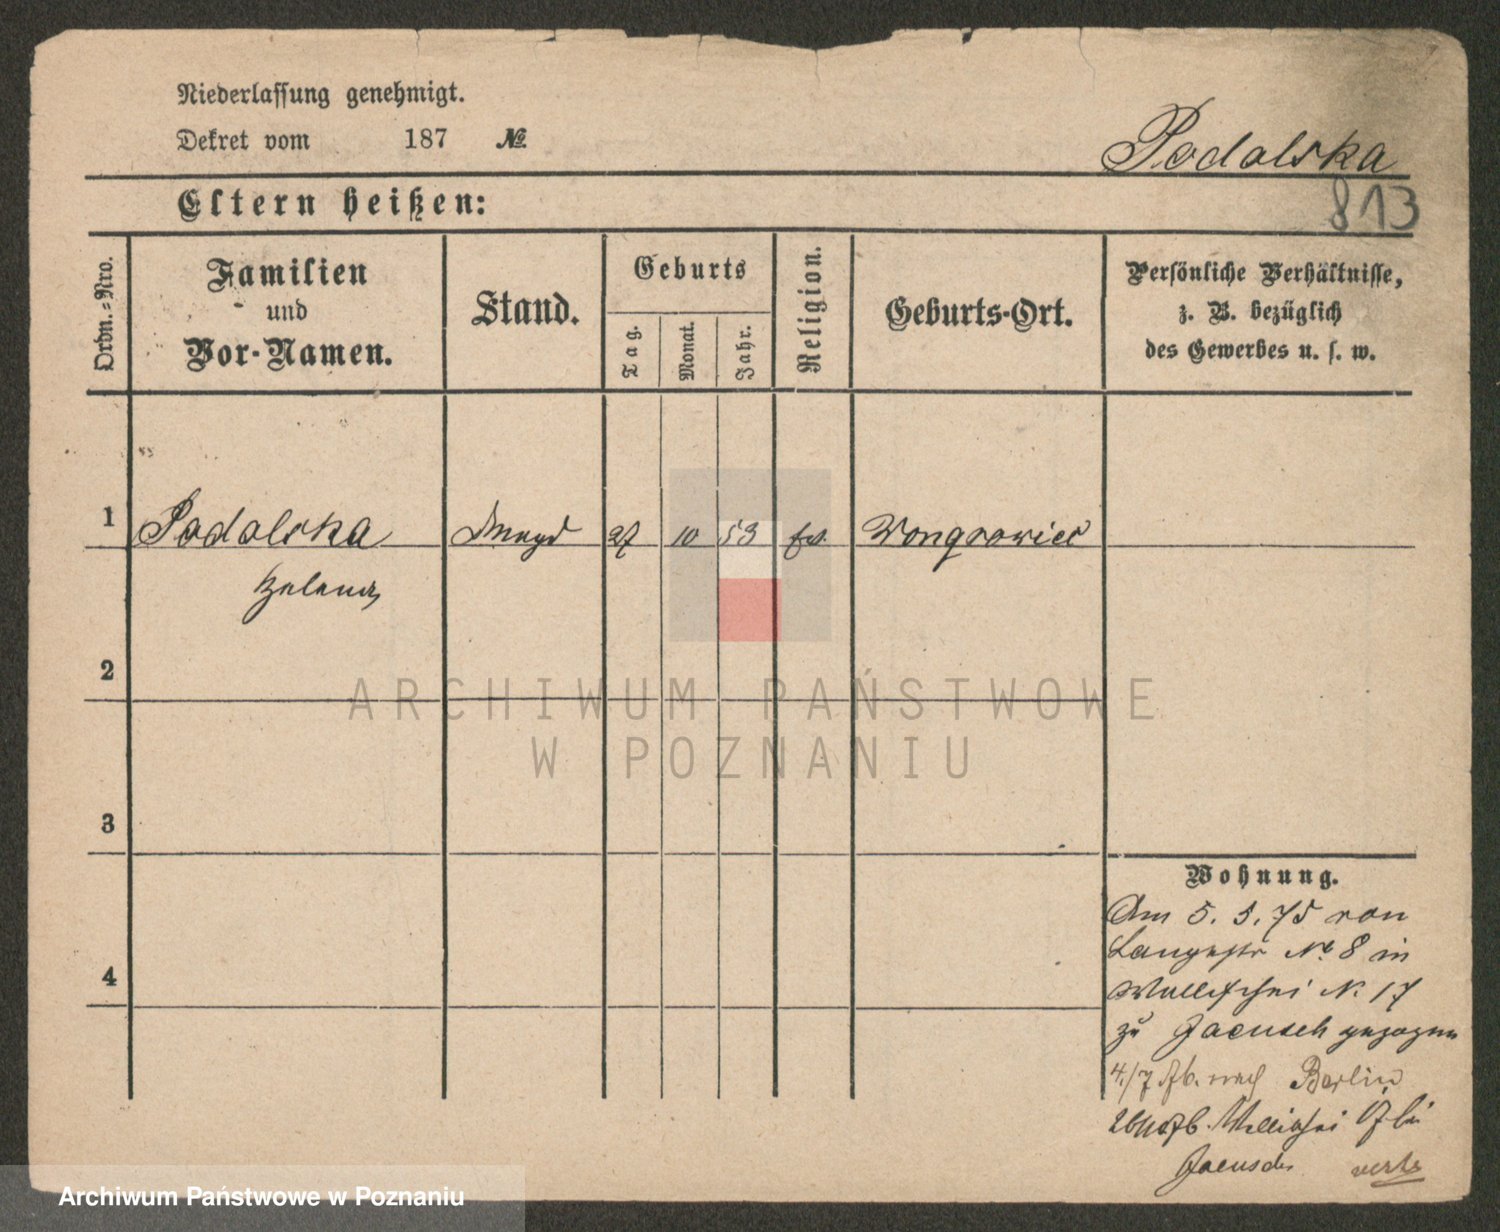 Niederlassung genehmigt.
Dekret vom 187 №
Podolska
813
Eltern heißen:
Ordn.-Nro.
Familien
und
Vor-Namen.
Stand.
Geburts
Tag.
Monat.
Jahr.
Religion.
Geburts-Ort.
Persönliche Verhältnisse,
z. B. bezüglich
des Gewerbes u. s. w.
1 Podolska 27 10 53 Wongrowiec
Helena
2
3
4
Wohnung.
Am 5. 5. 75 von
Langestr № 8 in
Wallischei N. 17
zu gezogen
4/7 76. nach Berlin
76. Wallischei 17 bei
ARCHIWUM PAŃSTWOWE
W POZNANIU
Archiwum Państwowe w Poznaniu